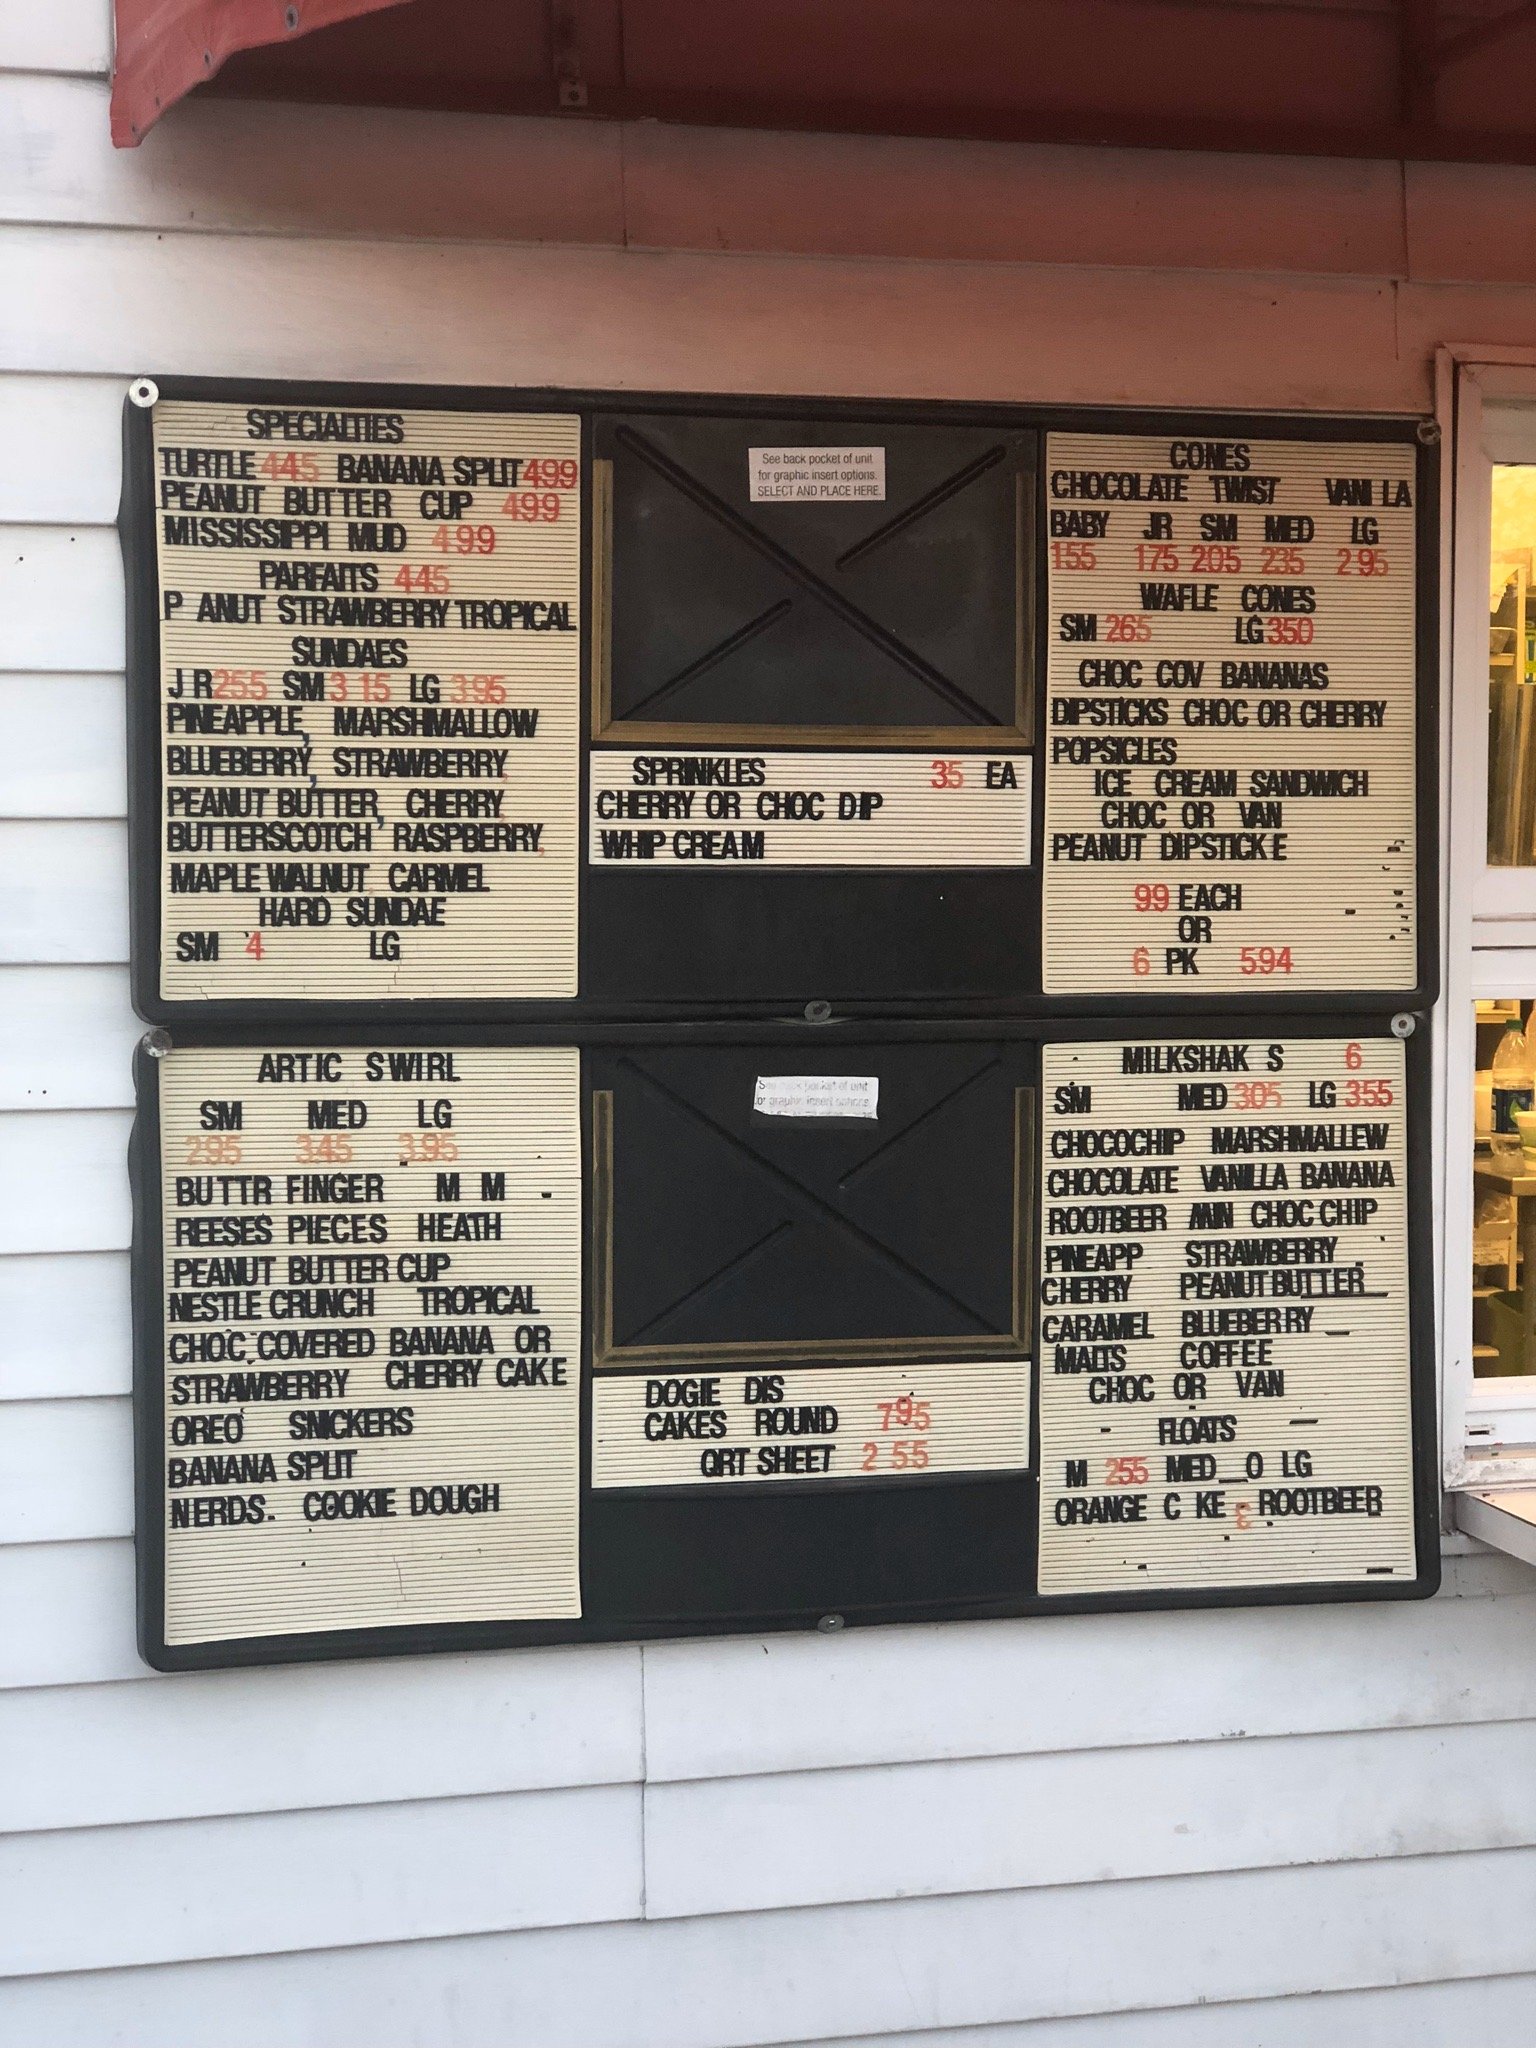 SPECIALTIES
TURTLE 445 BANANA SPLIT 499
PEANUT BUTTER CUP 499
MISSISSIPPI MUD 499
PARFAITS 445
P ANUT STRAWBERRY TROPICAL
SUNDAES
J R 255 SM 3 15 LG 3.95
PINEAPPLE, MARSHMALLOW
BLUEBERRY, STRAWBERRY,
PEANUT BUTTER, CHERRY,
BUTTERSCOTCH RASPBERRY,
MAPLE WALNUT, CARMEL
HARD SUNDAE
SM 4 LG
See back pocket of unit
for graphic insert options.
SELECT AND PLACE HERE.
SPRINKLES 35 EA
CHERRY OR CHOC DIP
WHIP CREAM
CONES
CHOCOLATE TWIST VANI LA
BABY JR SM MED LG
155 175 205 235 2 95
WAFLE CONES
SM 265 LG 350
CHOC COV BANANAS
DIPSTICKS CHOC OR CHERRY
POPSICLES
ICE CREAM SANDWICH
CHOC OR VAN
PEANUT DIPSTICK E
99 EACH
OR
6 PK 594
ARTIC SWIRL
SM MED LG
295 345 3.95
BUTTR FINGER M M
REESES PIECES HEATH
PEANUT BUTTER CUP
NESTLE CRUNCH TROPICAL
CHOC COVERED BANANA OR
STRAWBERRY CHERRY CAKE
OREO SNICKERS
BANANA SPLIT
NERDS. COOKIE DOUGH
See back pocket of unit
or graphic insert options.
DOGIE DIS
CAKES ROUND 795
QRT SHEET 2 55
MILKSHAK S 6
SM MED 305 LG 355
CHOCOCHIP MARSHMALLEW
CHOCOLATE VANILLA BANANA
ROOTBEER CHOC CHIP
PINEAPP STRAWBERRY
CHERRY PEANUT BUTTER
CARAMEL BLUEBERRY
MALTS COFFEE
CHOC OR VAN
FLOATS
M 255 MED O LG
ORANGE C KE 3 ROOTBEER